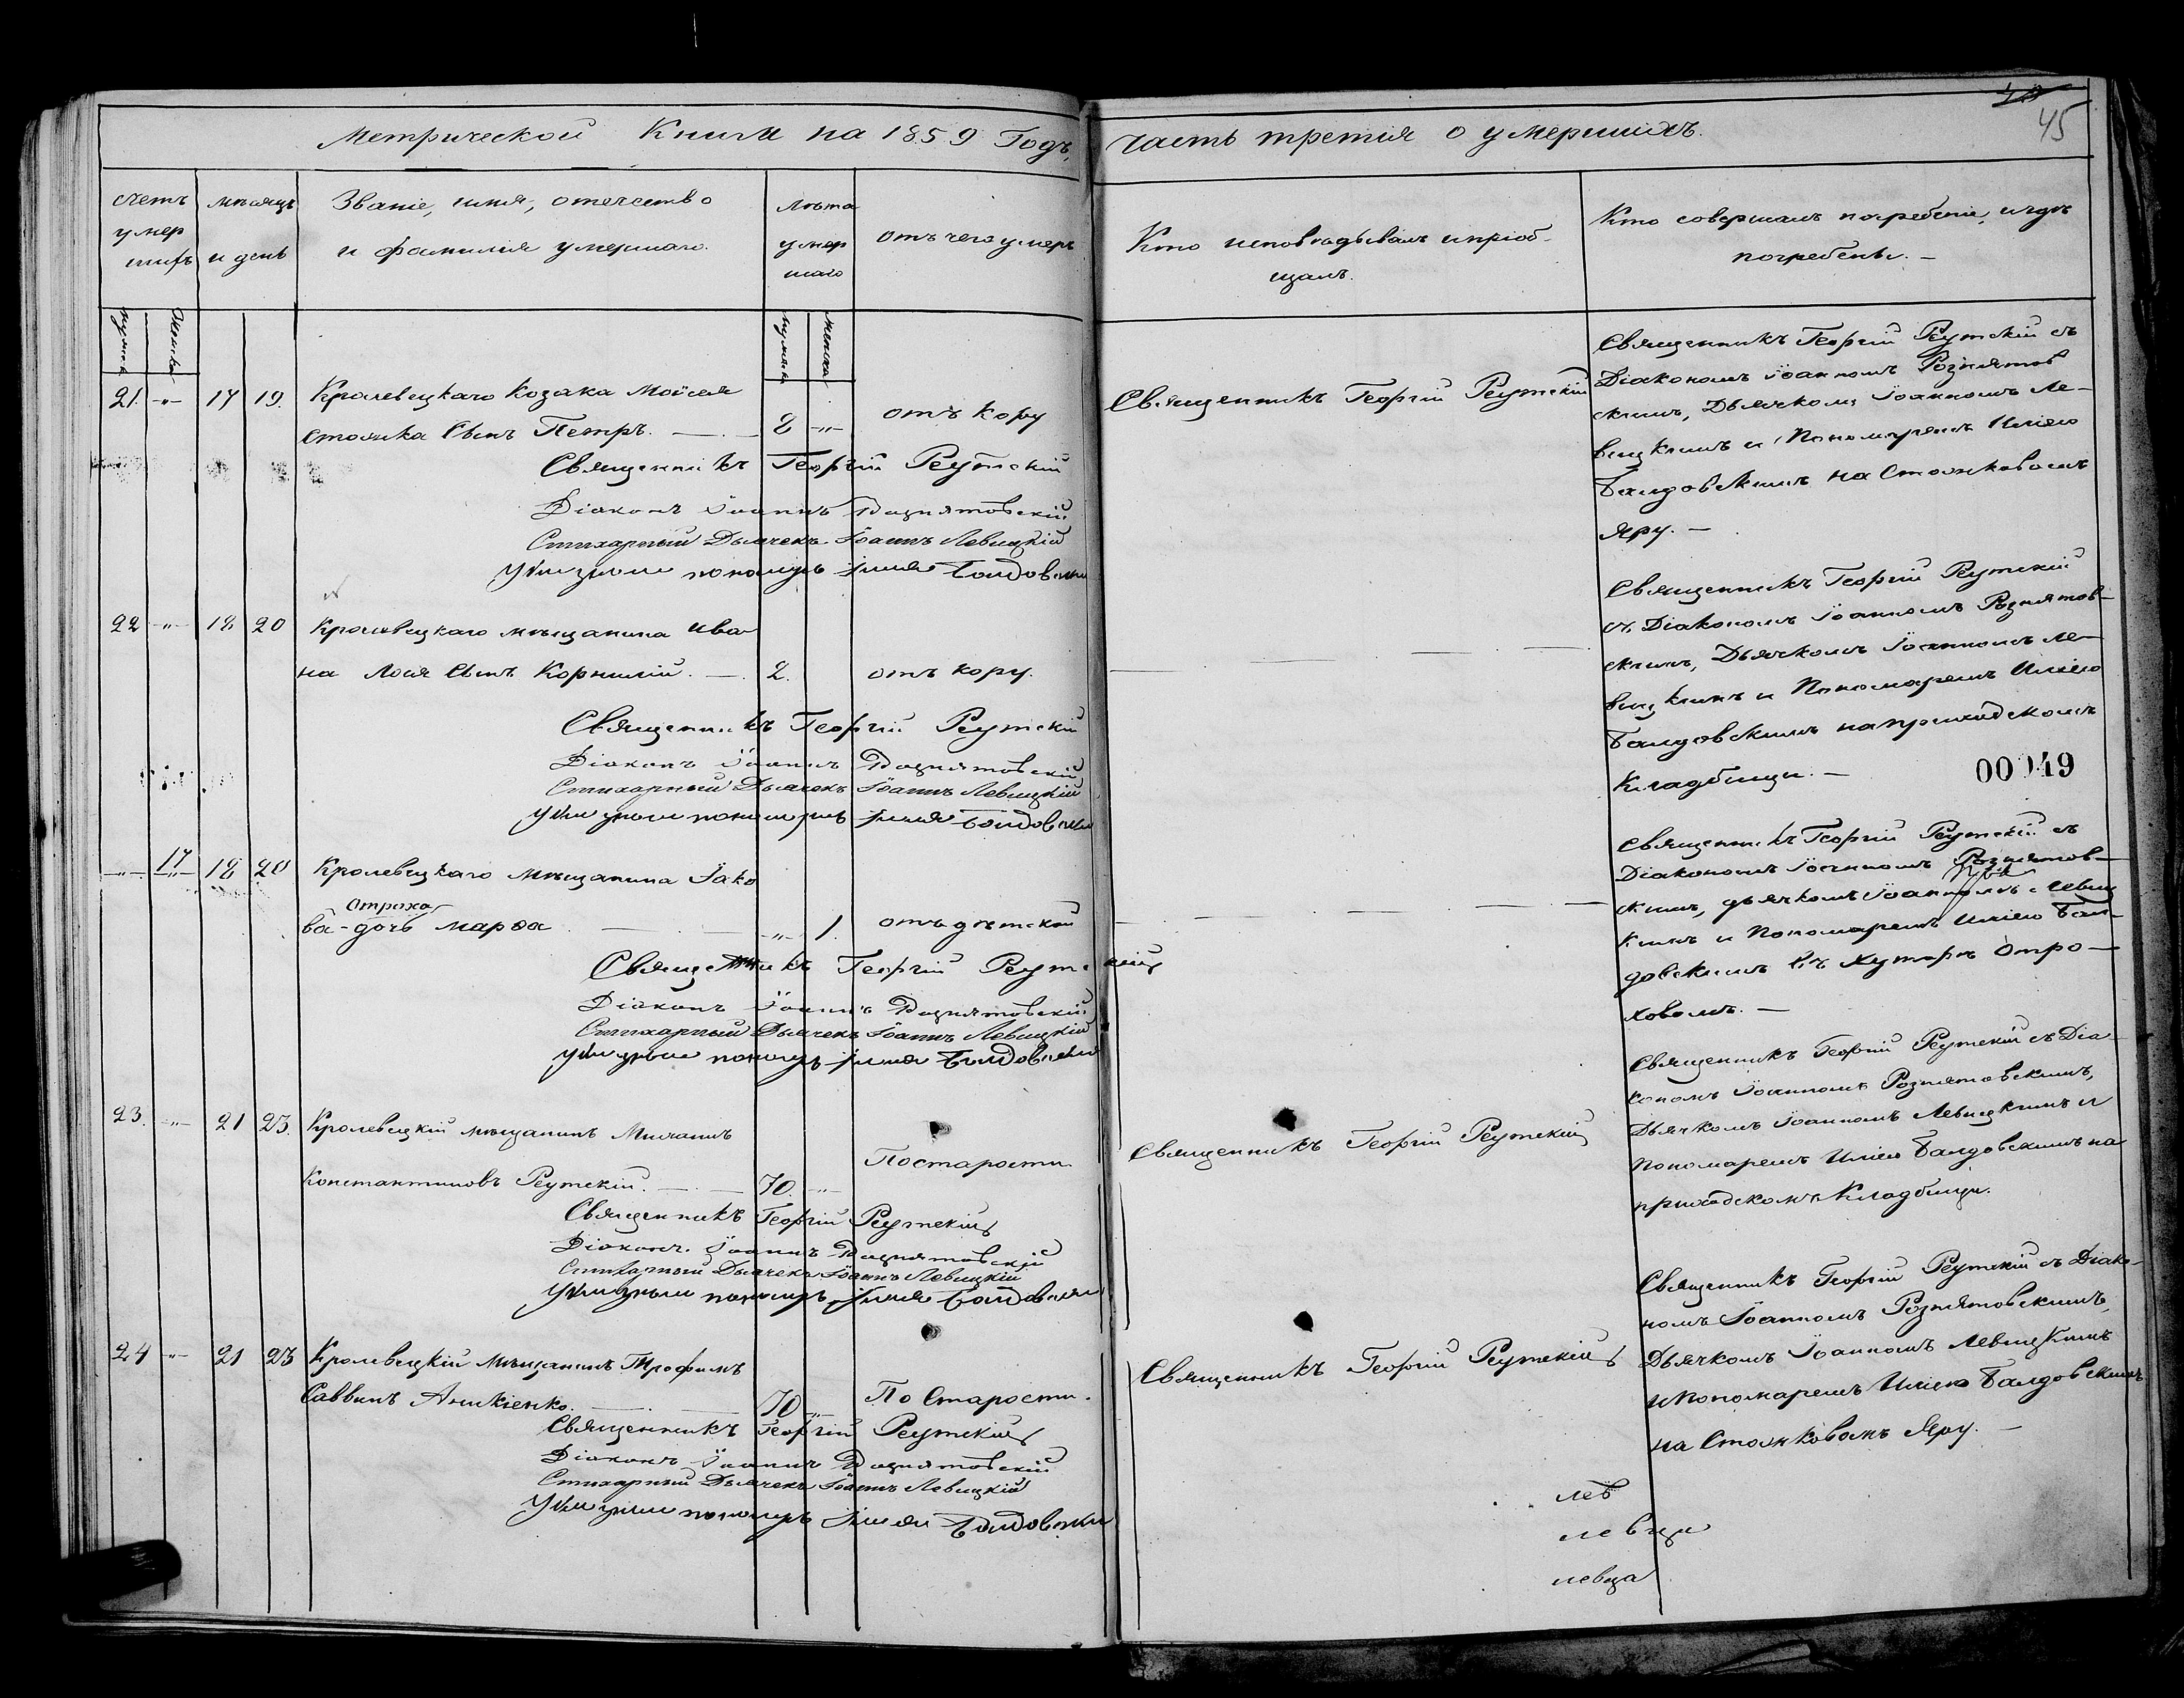 45
Метрической Книги на 1859 Годъ, часть третія о умершихъ.
счетъ умер шихъ
мѣсяцъ и день
Званіе, имя, отечество и фамилія умершаго.
Лѣта умер шаго
отъ чего умеръ
Кто исповѣдывалъ и пріоб-
щалъ.
Кто совершалъ погребеніе, и гдѣ
погребены. —
мужеска
женска
мужеска
женска
21. -"- 17 19. Кролевецкаго Козака Моисея
Стоянка Сынъ Петръ. — 8 -"- отъ кору
Священникъ Георгій Реутскій
Діаконъ Іоаннъ Рознятовскій
Стихарный Дьячекъ Іоаннъ Левицкій
пономарь Илія Балдовскій
Священникъ Георгій Реутскій
Священникъ Георгій Реутскій съ
Діакономъ Іоанномъ Рознятов
скимъ, Дьячкомъ Іоанномъ Ле-
вицкимъ и Пономаремъ Иліею
Балдовскимъ на Стоянковомъ
Яру. —
22 -"- 18 20 Кролевецкаго мѣщанина Ива
на Лося Сынъ Корнилій. — 2. отъ кору.
Священникъ Георгій Реутскій
Діаконъ Іоаннъ Рознятовскій
Стихарный Дьячекъ Іоаннъ Левицкій
пономарь Илія Балдовскій
Священникъ Георгій Реутскій
съ Діакономъ Іоанномъ Рознятов-
скимъ, Дьячкомъ Іоанномъ Ле-
вицкимъ и Пономаремъ Иліею
Балдовскимъ на приходскомъ
Кладбищи. —
00049
-"- 17 18 20 Кролевецкаго мѣщанина Іако
Отроха
ва - дочь Марѳа — -"- 1. отъ дѣтской
Священникъ Георгій Реутскій
Діаконъ Іоаннъ Рознятовскій
Стихарный Дьячекъ Іоаннъ Левицкій
пономарь Илія Балдовскій
Священникъ Георгій Реутскій съ
Діакономъ Іоанномъ Рознятов-
скимъ, дьячкомъ Іоанномъ Левиц
кимъ и Пономаремъ Иліею Бал-
довскимъ въ Хуторѣ Отро-
ховомъ. —
23. -"- 21 23. Кролевецкій мѣщанинъ Михаилъ
Константиновъ Реутскій. — 70. -"- По старости
Священникъ Георгій Реутскій
Діаконъ Іоаннъ Рознятовскій
Стихарный Дьячекъ Іоаннъ Левицкій
пономарь Илія Балдовскій
Священникъ Георгій Реутскій
Священникъ Георгій Реутскій съ Діа-
кономъ Іоанномъ Рознятовскимъ,
Дьячкомъ Іоанномъ Левицкимъ и
Пономаремъ Иліею Балдовскимъ на
приходскомъ Кладбищи.
24 -"- 21 23 Кролевецкій мѣщанинъ Трофимъ
Саввинъ Аникіенко. — 70 -"- По Старости.
Священникъ Георгій Реутскій
Діаконъ Іоаннъ Рознятовскій
Стихарный Дьячекъ Іоаннъ Левицкій
пономарь Илія Балдовскій
Священникъ Георгій Реутскій
Священникъ Георгій Реутскій съ Діако-
номъ Іоанномъ Рознятовскимъ,
Дьячкомъ Іоанномъ Левицкимъ
и Пономаремъ Иліею Балдовскимъ
на Стоянковомъ Яру. —
лев
левици
левца